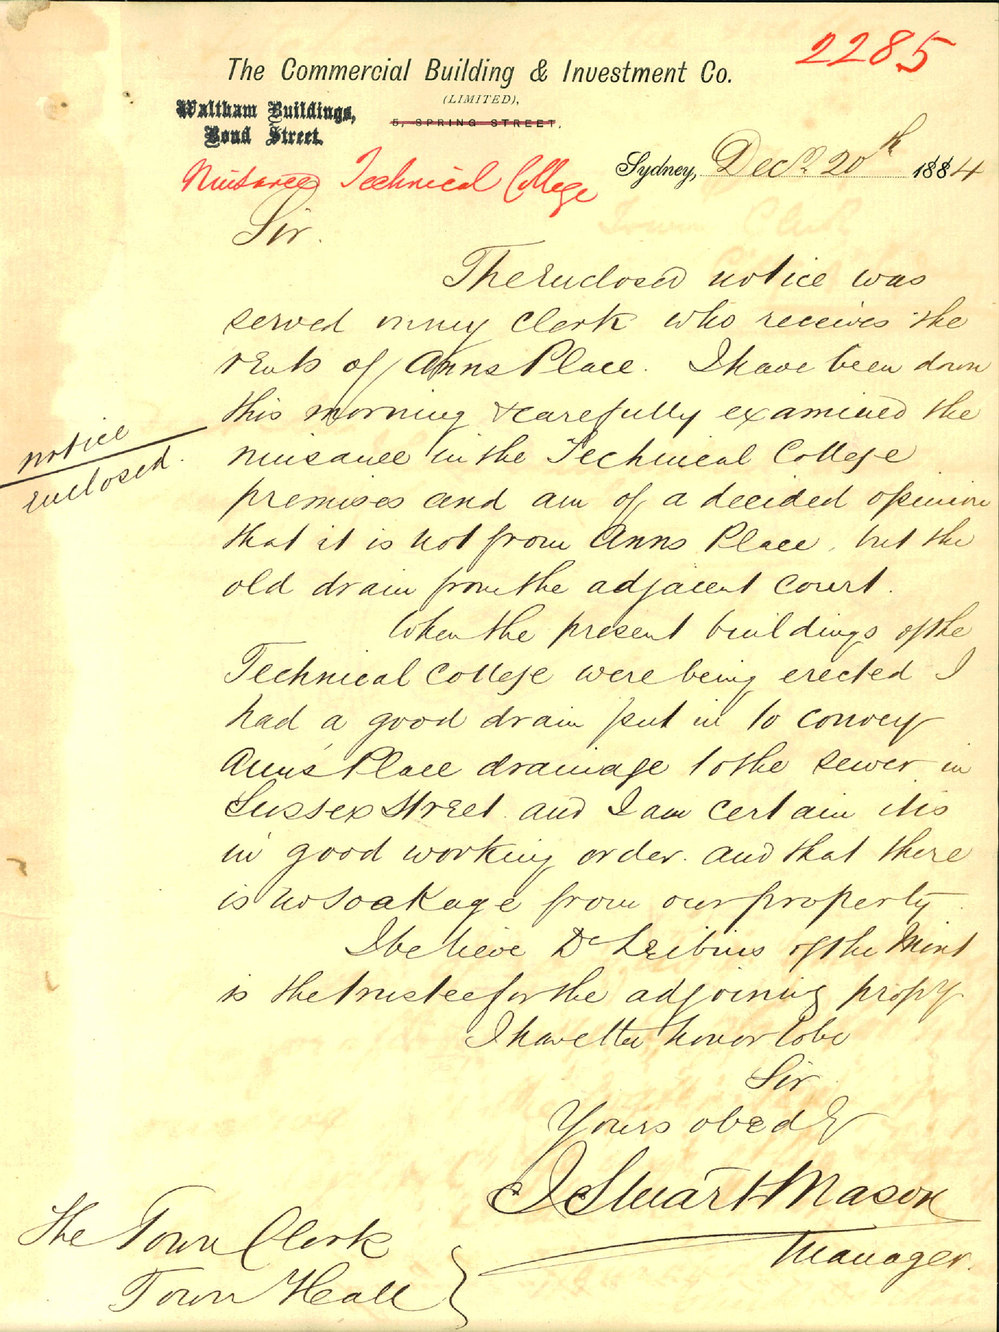 2285
The Commercial Building & Investment Co.
(LIMITED),
Waltham Buildings,
Bond Street.
5, SPRING STREET,
Nuisance Technical College
Sydney, Decr. 20th 1884
Sir.
The Enclosed notice was
served on my Clerk who receives the
rents of Anns Place. I have been down
this morning & carefully examined the
nuisance in the Technical College
premises and am of a decided opinion
that it is not from Anns Place, but the
old drain from the adjacent Court.
When the present buildings of the
Technical College were being erected I
had a good drain put in to convey
Ann's Place drainage to the sewer in
Sussex Street and I am certain it is
in good working order. and that there
is no soakage from our property.
I believe Dr Leibius of the Mint
is the trustee for the adjoining propy
I have the honor to be
Sir
Yours obed
J Stuart Mason
Manager.
The Town Clerk
Town Hall
notice
Enclosed.